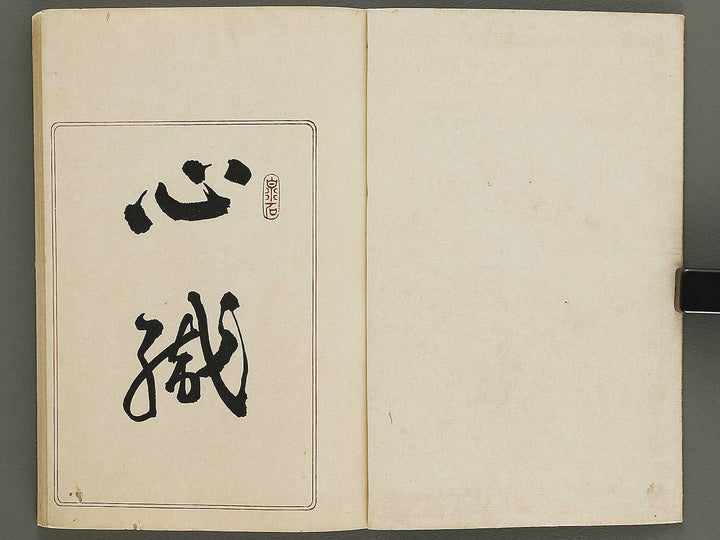 心織
泉石